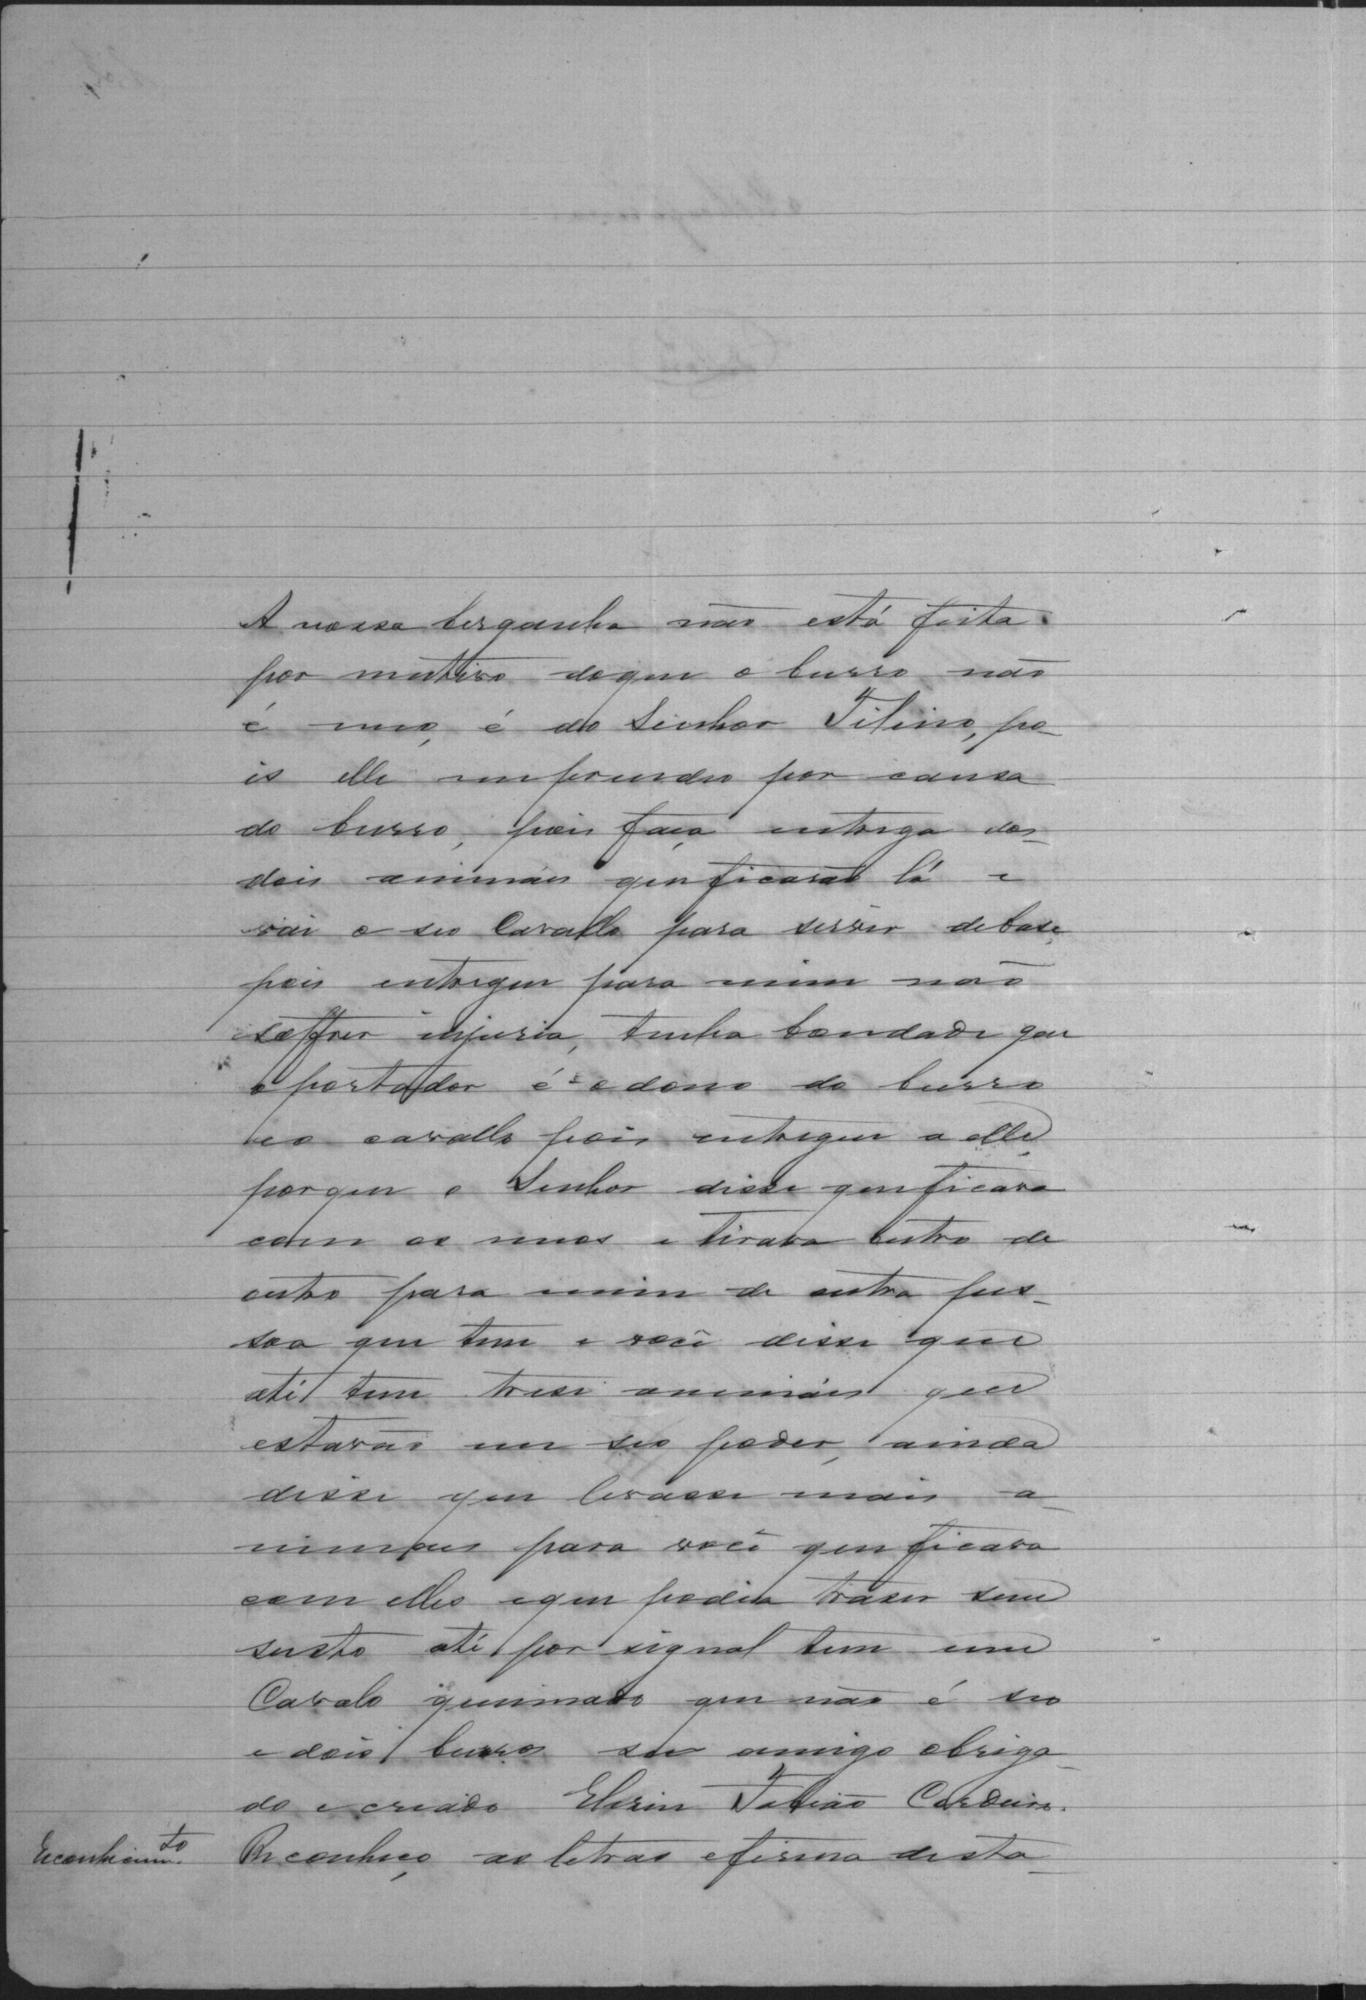 A nossa berganha não está feita
por mutivo doque o burro não
é meu, é do Senhor Filino, po-
is elle me prendeo por causa
do burro, pois faça entrega dos
dois animáis que ficarão lá e
vai o seo Cavallo para servir de base
pois entregue para mim não
soffrer injuria, tenha bondade que
o portador é o dono do burro
eo cavallo pois entregue a elle
porque o Senhor disse que ficava
com os meos e tirava outro de
outro para mim de outra pes-
soa que tem e você disse que
até tem trese animáis que
estavão em seo poder, ainda
disse que levasse mais a-
nimaes para você que ficava
com elles eque podia traser sem
susto até por signal tem um
Cavalo queimado que não é seo
e dois burros seu amigo obriga-
do e creado Elerin Fabião Cordeiro.
Reconhecimto. Reconheço as letras efirma desta-